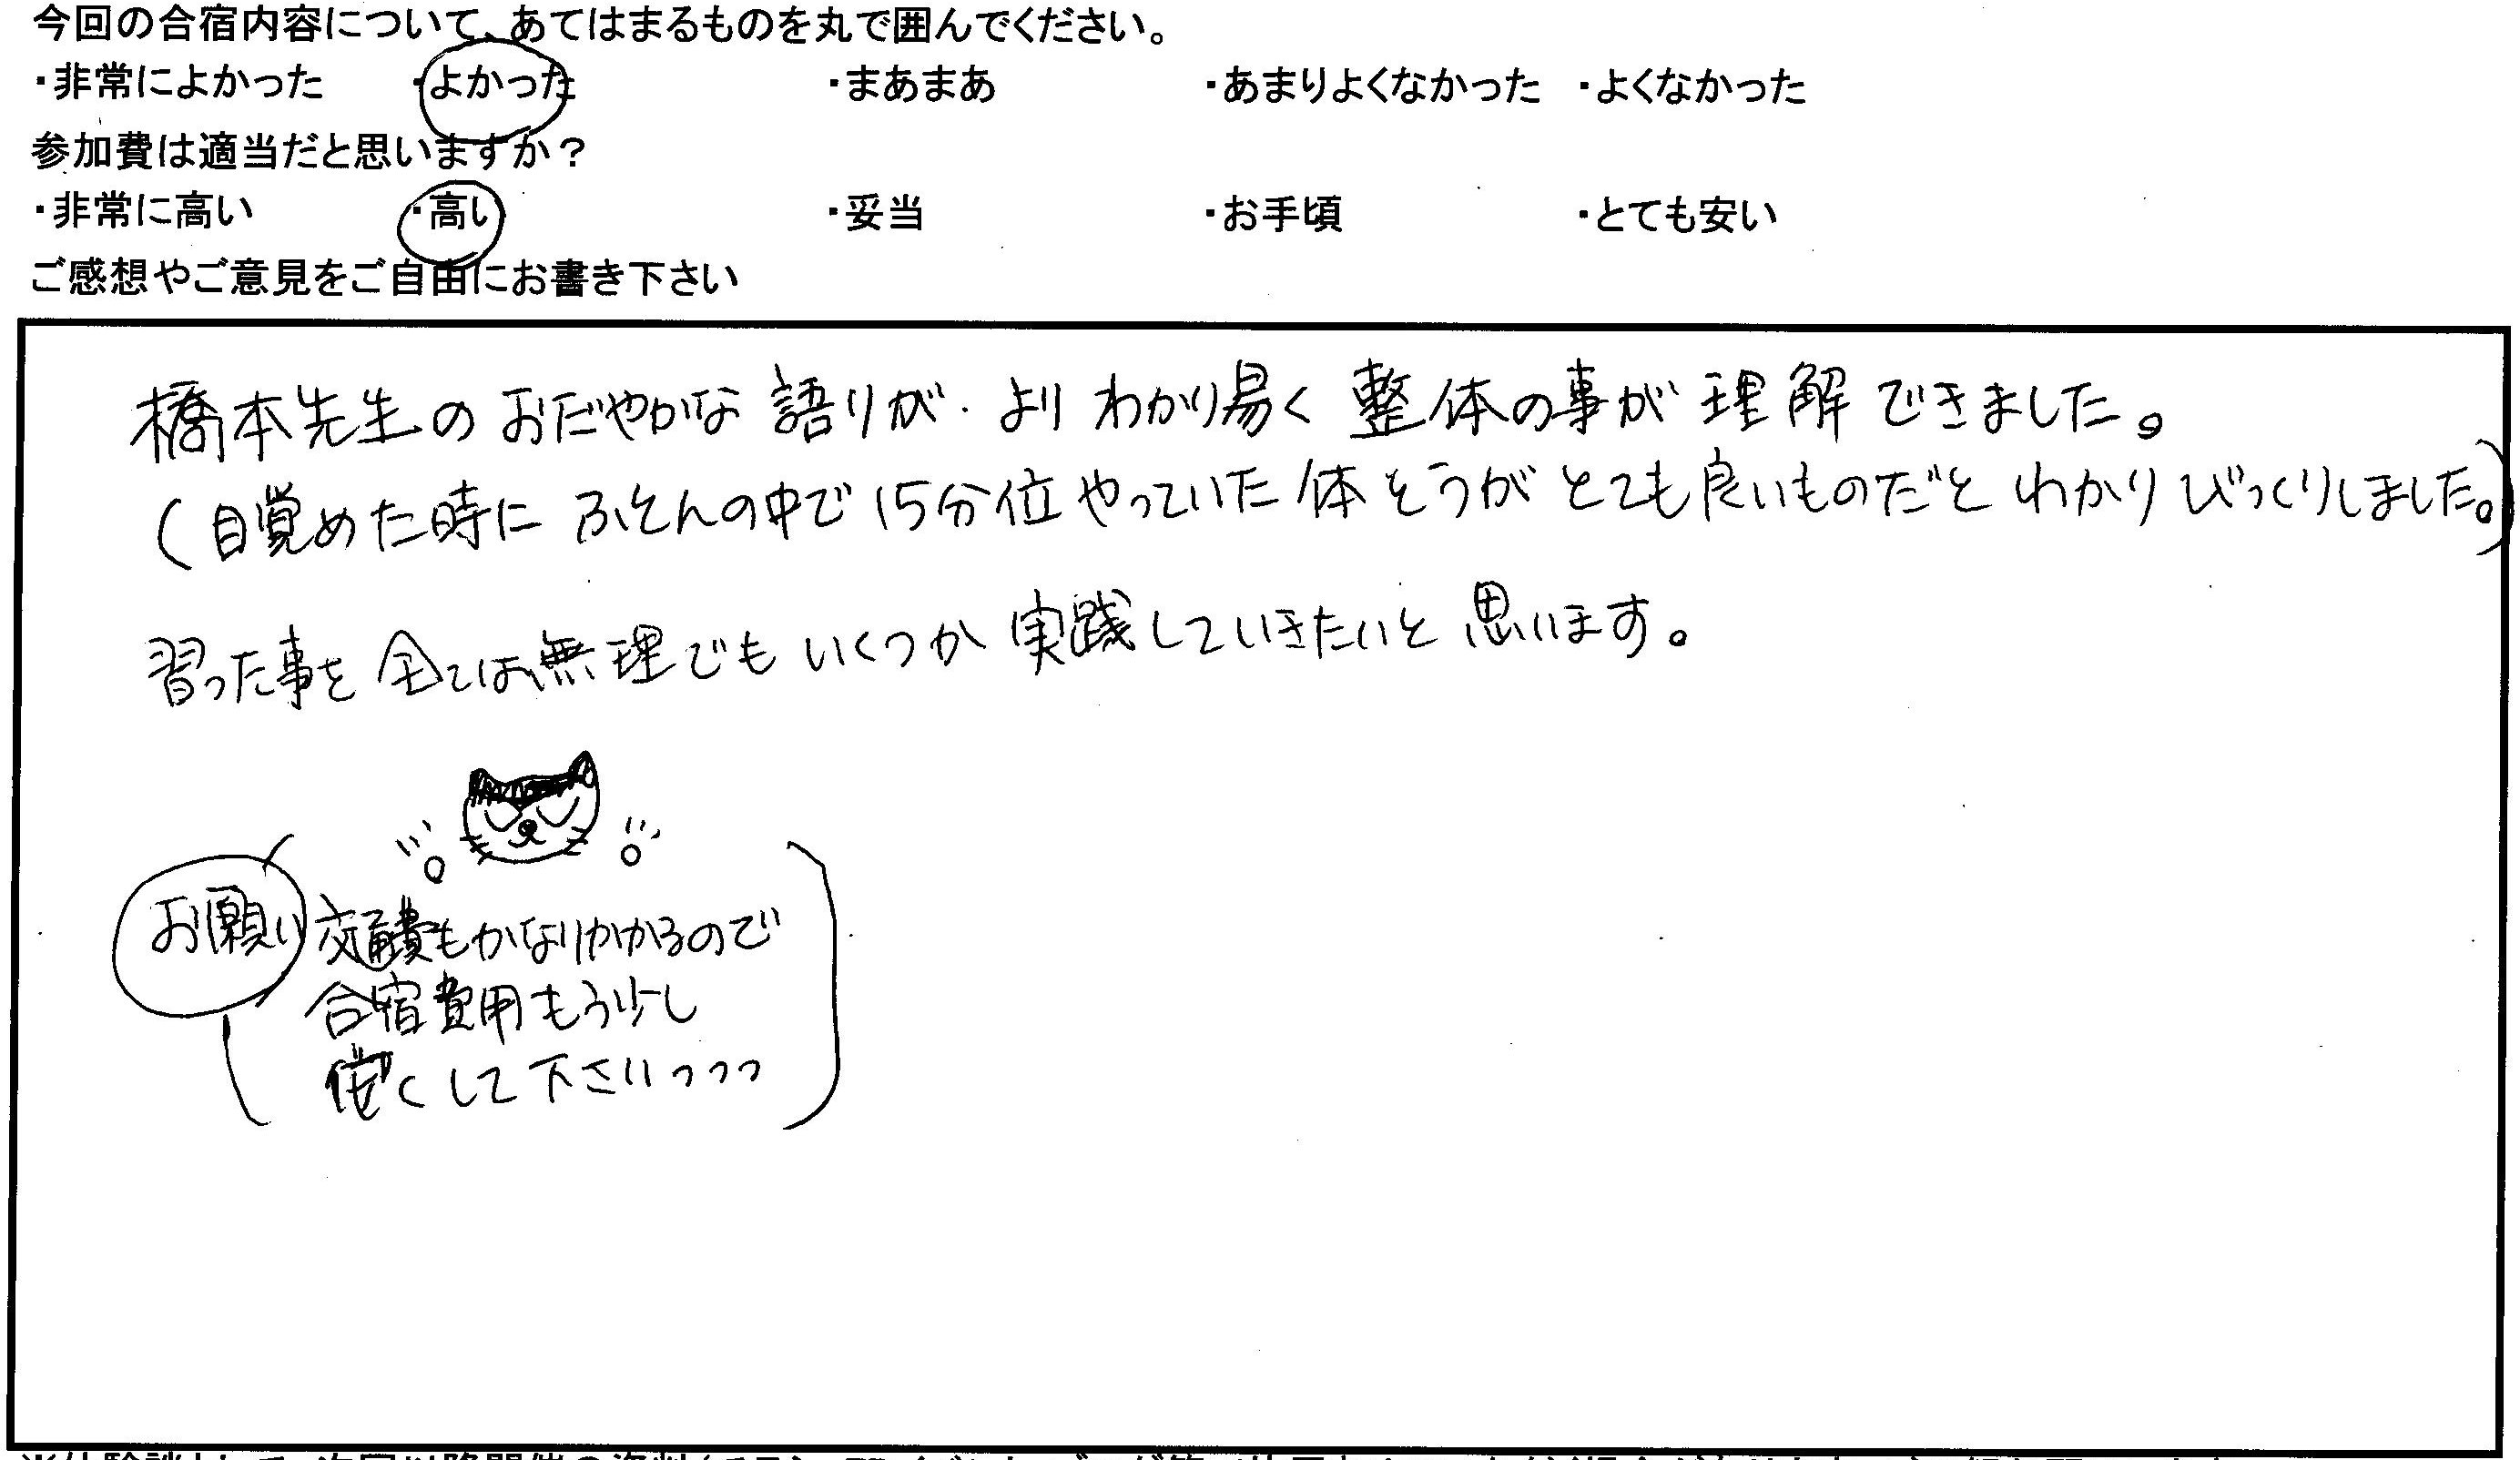 今回の合宿内容について、あてはまるものを丸で囲んでください。
・非常によかった ・よかった ・まあまあ ・あまりよくなかった ・よくなかった
参加費は適当だと思いますか？
・非常に高い ・高い ・妥当 ・お手頃 ・とても安い
ご感想やご意見をご自由にお書き下さい
橋本先生の おだやかな 語りが、より わかり易く 整体の事が 理解 できました。
(目覚めた時に ふとんの中で 15分位 やっていた 体そうが とても良いものだと わかり びっくりしました。)
習った事を 全ては無理でも いくつか 実践していきたいと 思います。
お願い 交通費もかなりかかるので
合宿費用もう少し
くして下さいっっっ